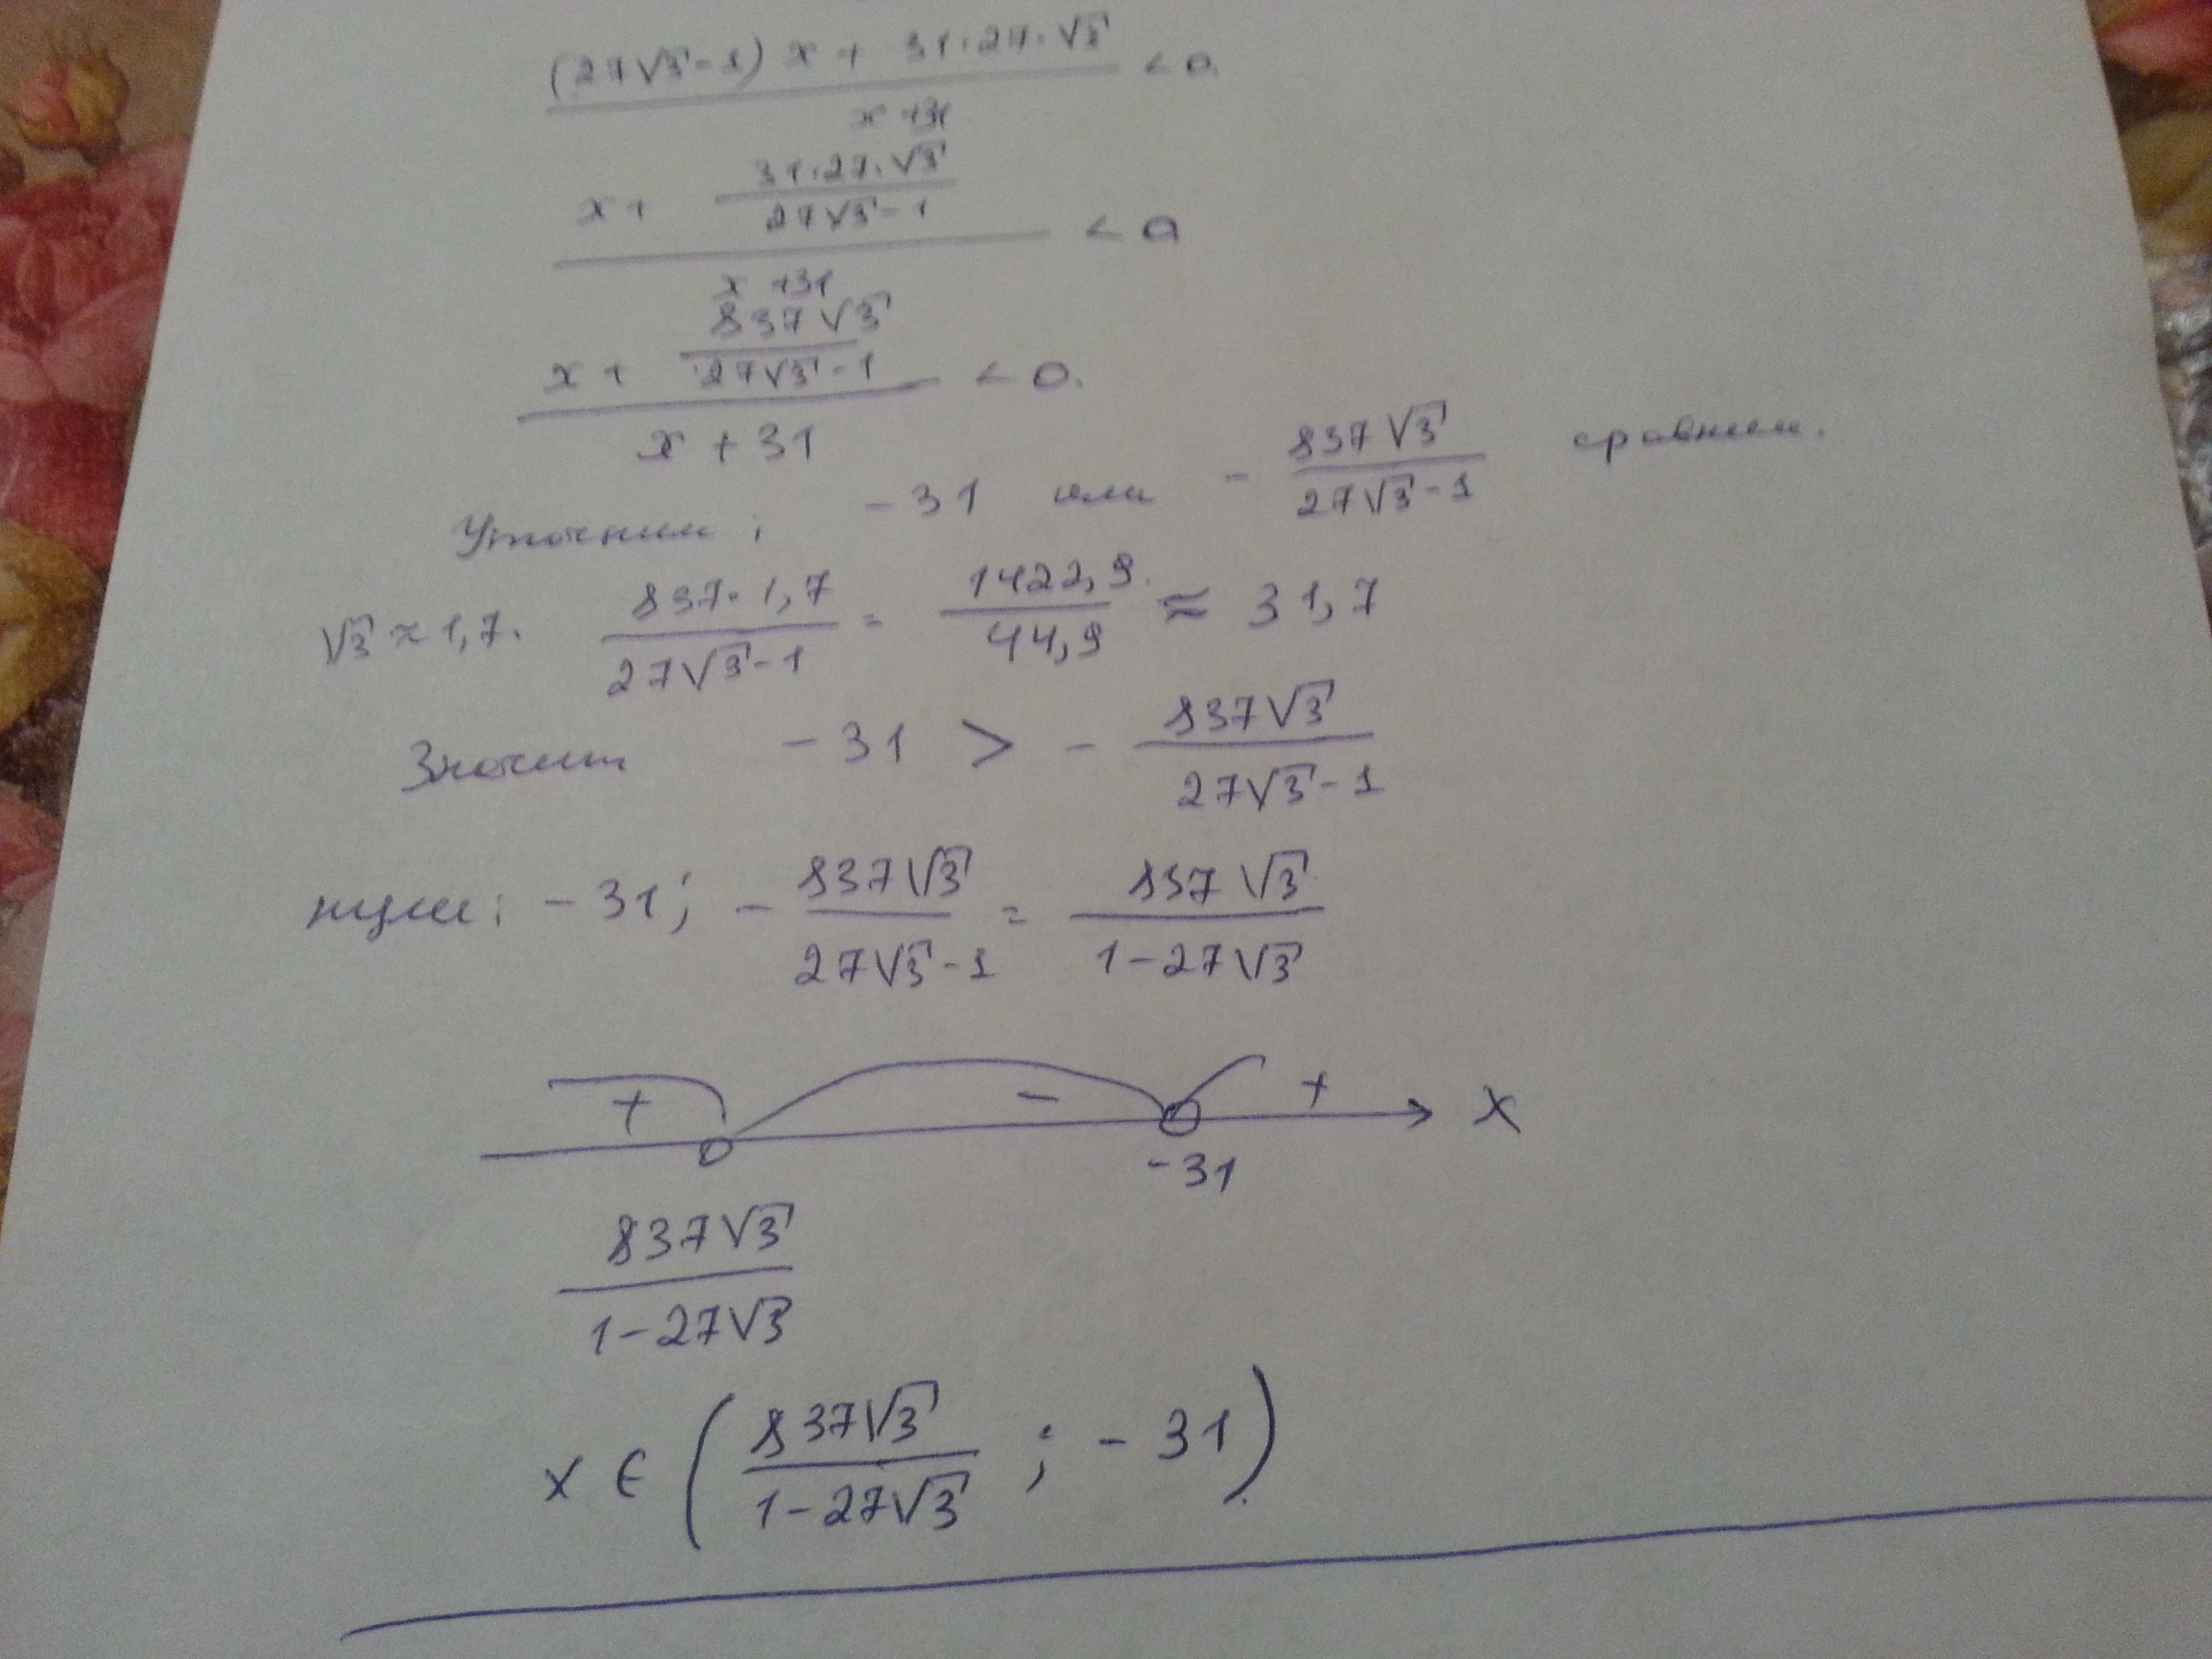 (27√3-1) x + 31·27·√3 / x+31 < 0.
x + 31·27·√3 / 27√3-1 / x+31 < 0
x + 837√3 / 27√3-1 / x + 31 < 0.
Уточним: -31 или - 837√3 / 27√3-1 сравним.
√3 ≈ 1,7. 837·1,7 / 27√3-1 = 1422,9 / 44,9 ≈ 31,7
Значит -31 > - 837√3 / 27√3-1
нули: -31; - 837√3 / 27√3-1 = 837√3 / 1-27√3
+ - + x
-31
837√3 / 1-27√3
x ∈ ( 837√3 / 1-27√3 ; -31 )